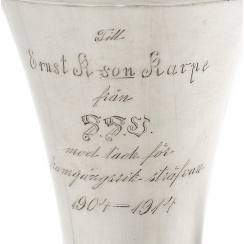 Till
Ernst K-son Karpe
från
med tack för
framgångsrik sträfvan
1904-1914